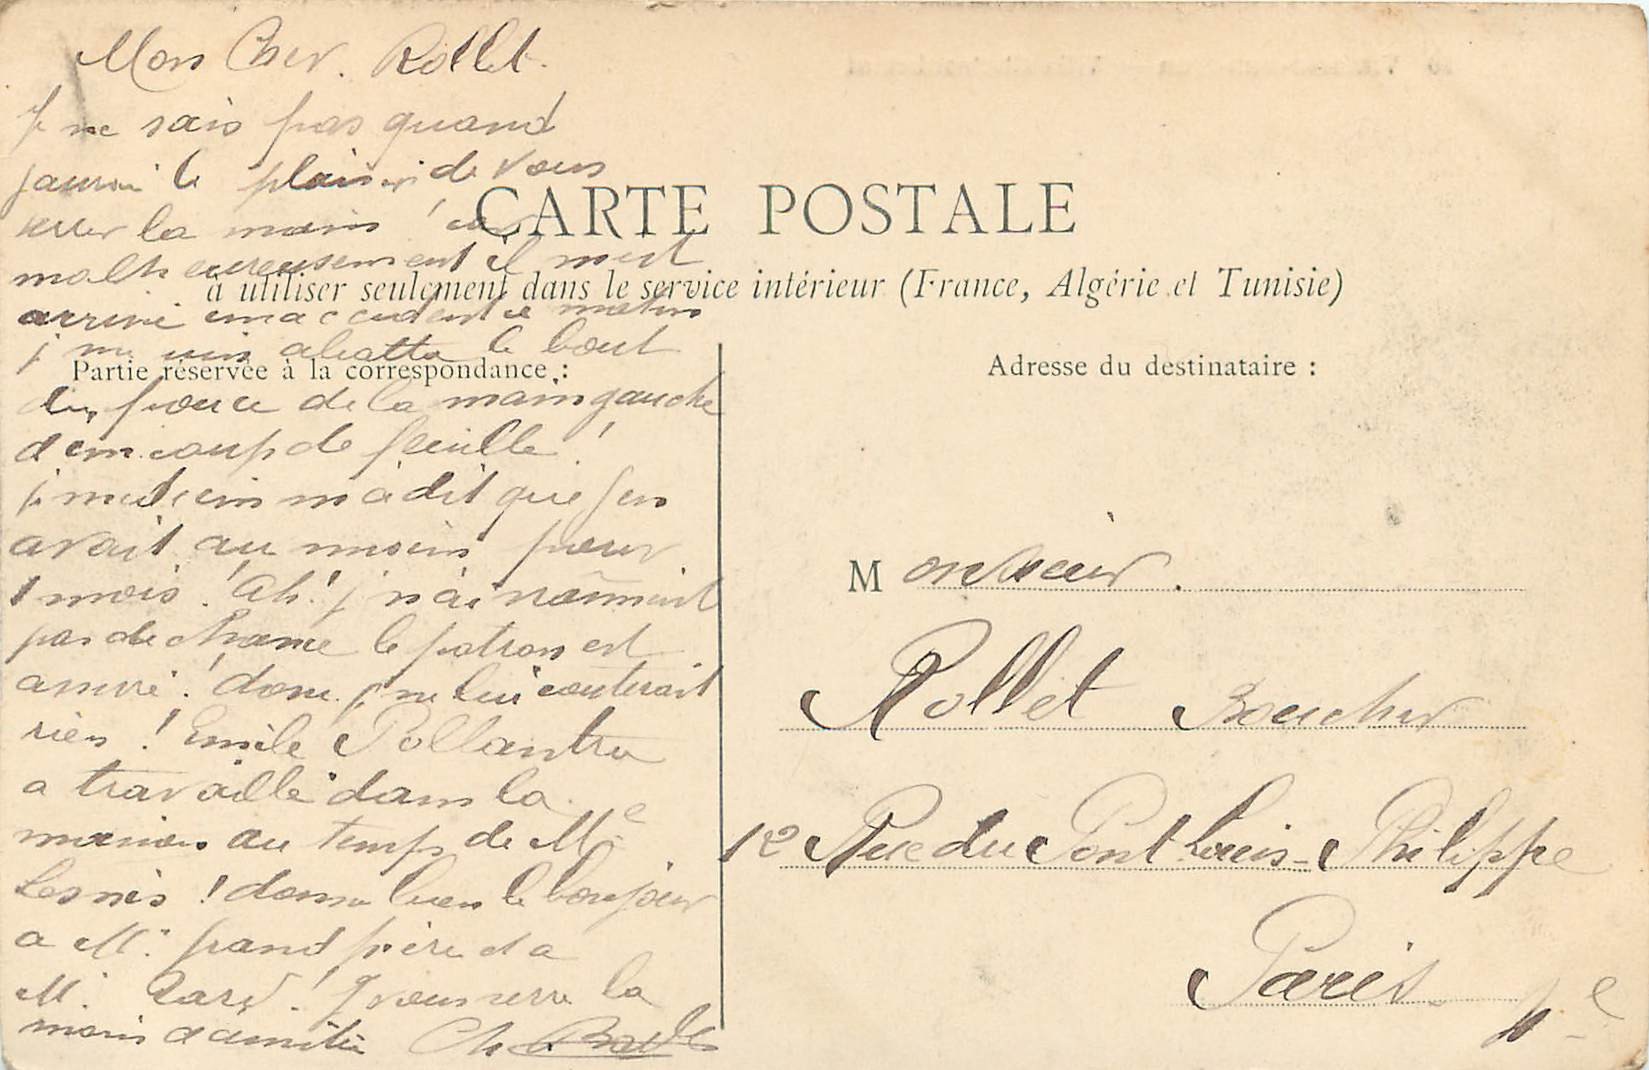 Mon Cher. Rollet.
Je ne sais pas quand
jaurai le plaisir de vous
serrer la main ! car
malheureusement il mest
arrivé un accident ce matin
je me suis abattu le bout
du pouce de la main gauche
d'un coup de feuille !
medecin m'a dit que jen
avait au moins pour
1 mois ! Ah ! je n'ai vraiment
pas de chance le patron est
assuré ! donc je ne lui couterait
rien ! Emile Pollantru
a travaillé dans la
maison au temps de Me
Lesnis ! donne bien le bonjour
a M. grand père et a
M. ! Je vous serre la
main d'amitié Ch
CARTE POSTALE
à utiliser seulement dans le service intérieur (France, Algérie et Tunisie)
Partie réservée à la correspondance :
Adresse du destinataire :
Monsieur.
Rollet Boucher
12 Rue du Pont Louis-Philippe
Paris. 4e